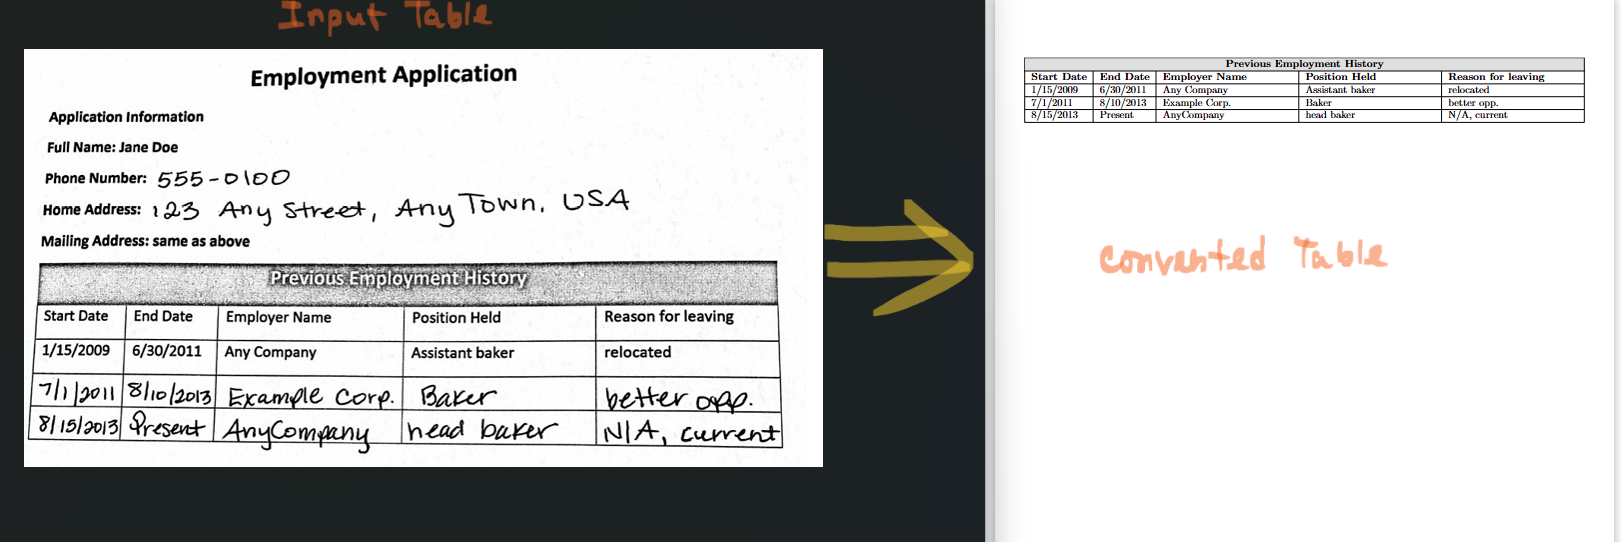 Input Table
Employment Application
Application Information
Full Name: Jane Doe
Phone Number: 555-0100
Home Address: 123 Any Street, Any Town, USA
Mailing Address: same as above
Previous Employment History
Start Date End Date Employer Name Position Held Reason for leaving
1/15/2009 6/30/2011 Any Company Assistant baker relocated
7/1/2011 8/10/2013 Example Corp. Baker better opp.
8/15/2013 Present AnyCompany head baker N/A, current
Previous Employment History
Start Date End Date Employer Name Position Held Reason for leaving
1/15/2009 6/30/2011 Any Company Assistant baker relocated
7/1/2011 8/10/2013 Example Corp. Baker better opp.
8/15/2013 Present AnyCompany head baker N/A, current
converted Table